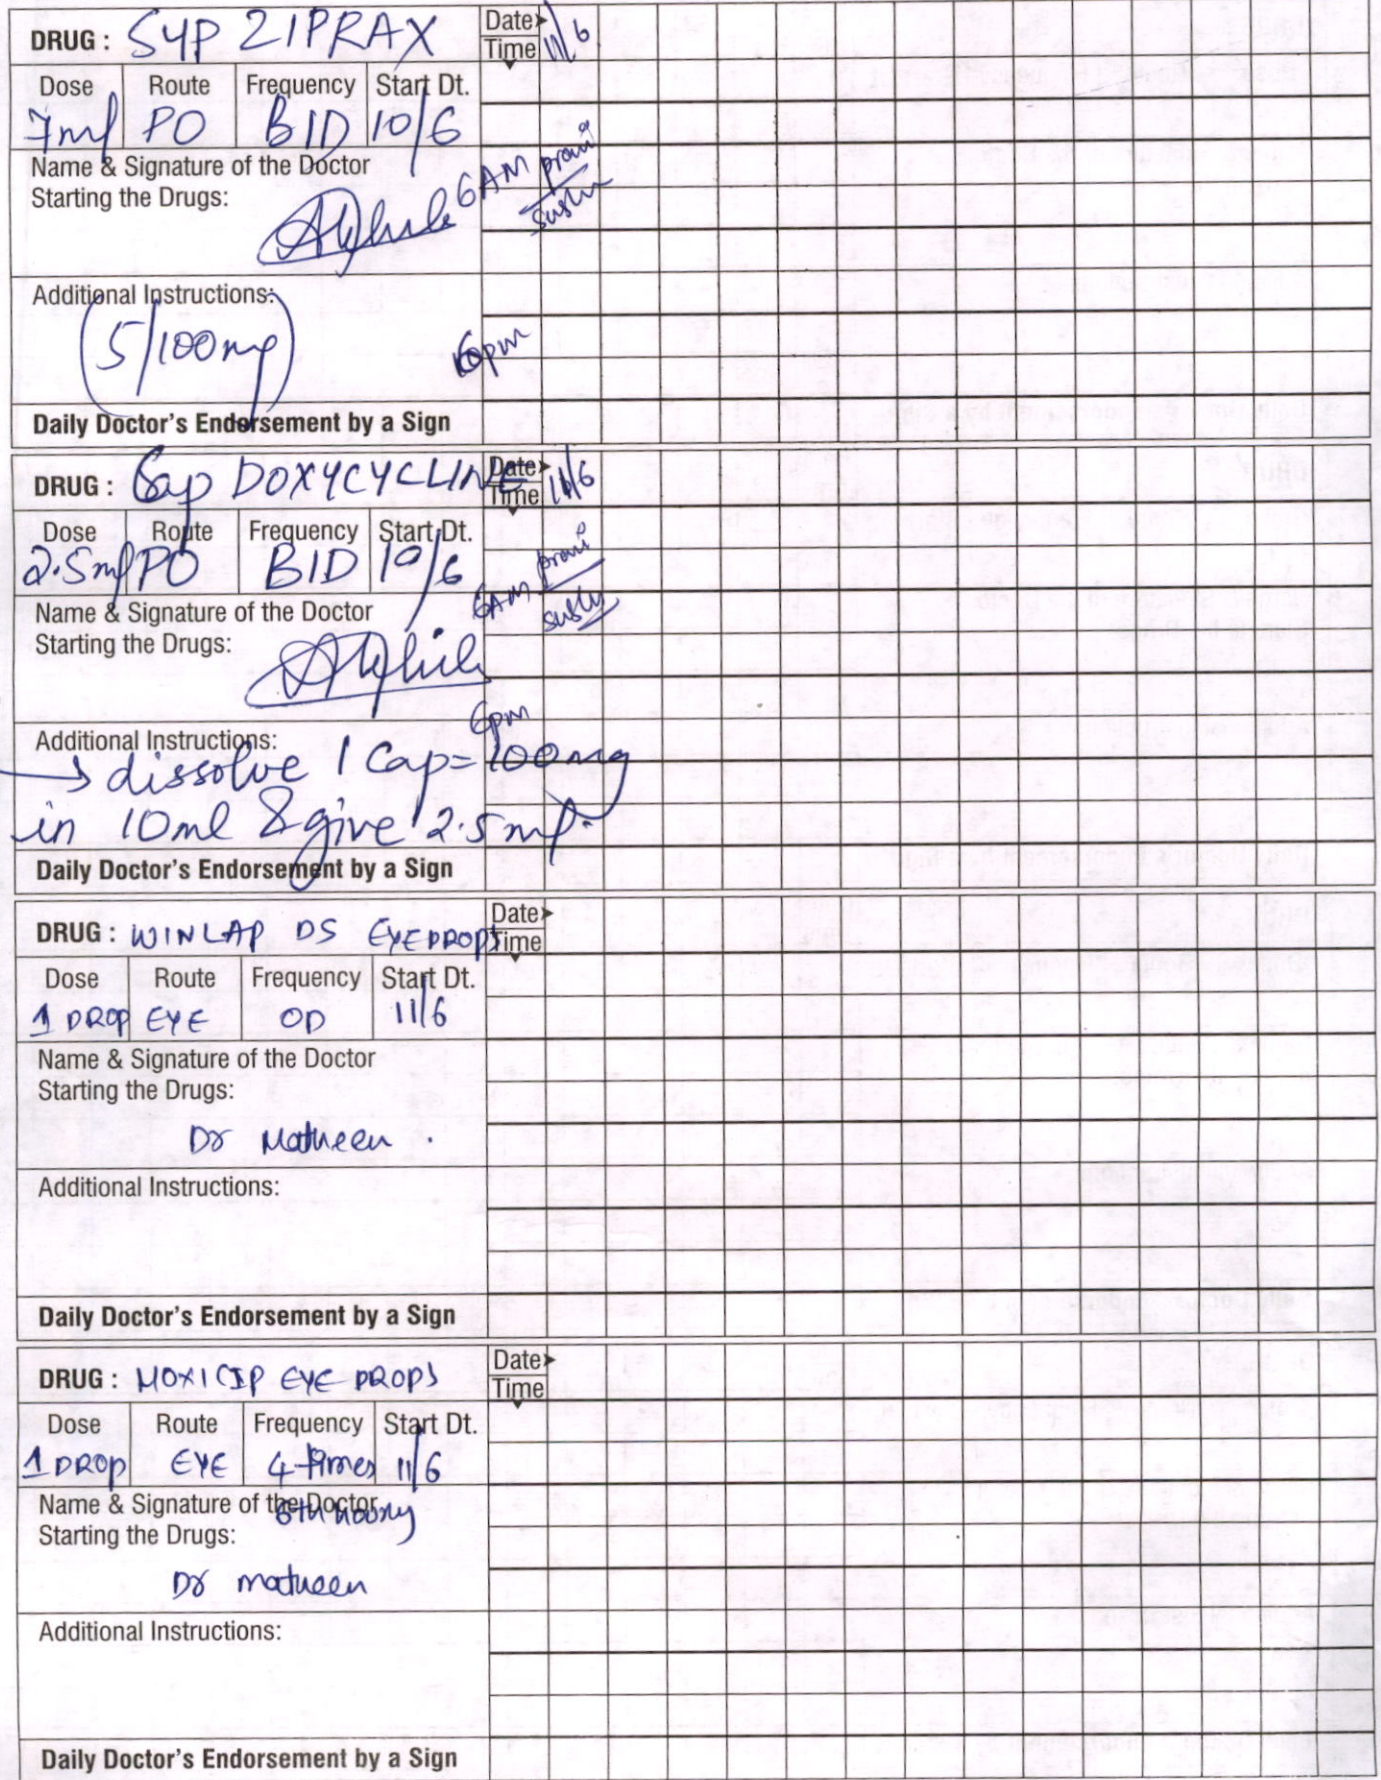 DRUG : SYP ZIPRAX Date➤ 11/6
Time
Dose Route Frequency Start Dt.
7ml PO BID 10/6
Name & Signature of the Doctor
Starting the Drugs:
6AM
Additional Instructions:
(5/100mg)
6pm
Daily Doctor's Endorsement by a Sign
DRUG : Cap DOXYCYCLINE Date➤ 11/6
Time
Dose Route Frequency Start Dt.
2.5ml PO BID 10/6
Name & Signature of the Doctor
Starting the Drugs:
6AM
6pm
Additional Instructions:
→ dissolve 1 Cap = 100mg
in 10ml & give 2.5ml.
Daily Doctor's Endorsement by a Sign
DRUG : WINLAP DS EYEDROPS Date➤
Time
Dose Route Frequency Start Dt.
1 DROP EYE OD 11/6
Name & Signature of the Doctor
Starting the Drugs:
Dr Matheen .
Additional Instructions:
Daily Doctor's Endorsement by a Sign
DRUG : MOXICIP EYE DROPS Date➤
Time
Dose Route Frequency Start Dt.
1 DROP EYE 4 times 11/6
Name & Signature of the Doctor
6th hourly
Starting the Drugs:
Dr matheen
Additional Instructions:
Daily Doctor's Endorsement by a Sign